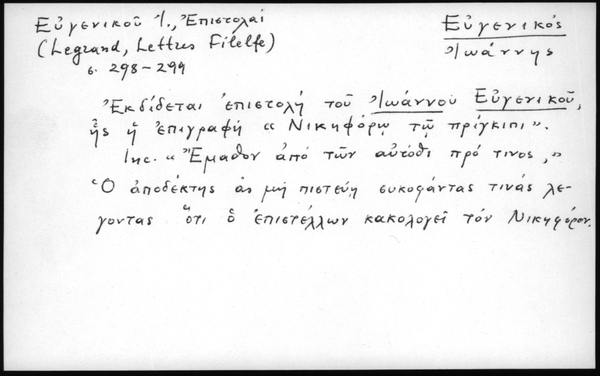 Εὐγενικοῦ Ἰ., Ἐπιστολαί
(Legrand, Lettres Filelfe)
σ. 298-299
Εὐγενικός
Ἰωάννης
Ἐκδίδεται ἐπιστολή τοῦ Ἰωάννου Εὐγενικοῦ,
ἧς ἡ ἐπιγραφή « Νικηφόρῳ τῷ πρίγκιπι ».
Inc. « Ἔμαθον ἀπό τῶν αὐτόθι πρό τινος, »
Ὁ ἀποδέκτης ἄς μή πιστεύῃ συκοφάντας τινάς λέ-
γοντας ὅτι ὁ ἐπιστέλλων κακολογεῖ τόν Νικηφόρον.